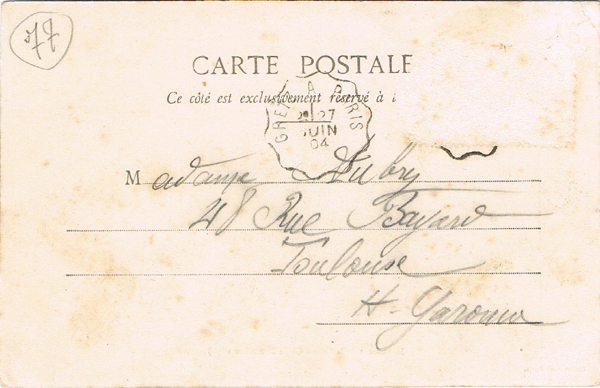 77
CARTE POSTALE
Ce côté est exclusivement réservé à l
GRETZ A PARIS
27
JUIN
04
Madame Dubry
48 Rue Bayard
Toulouse
H-Garonne